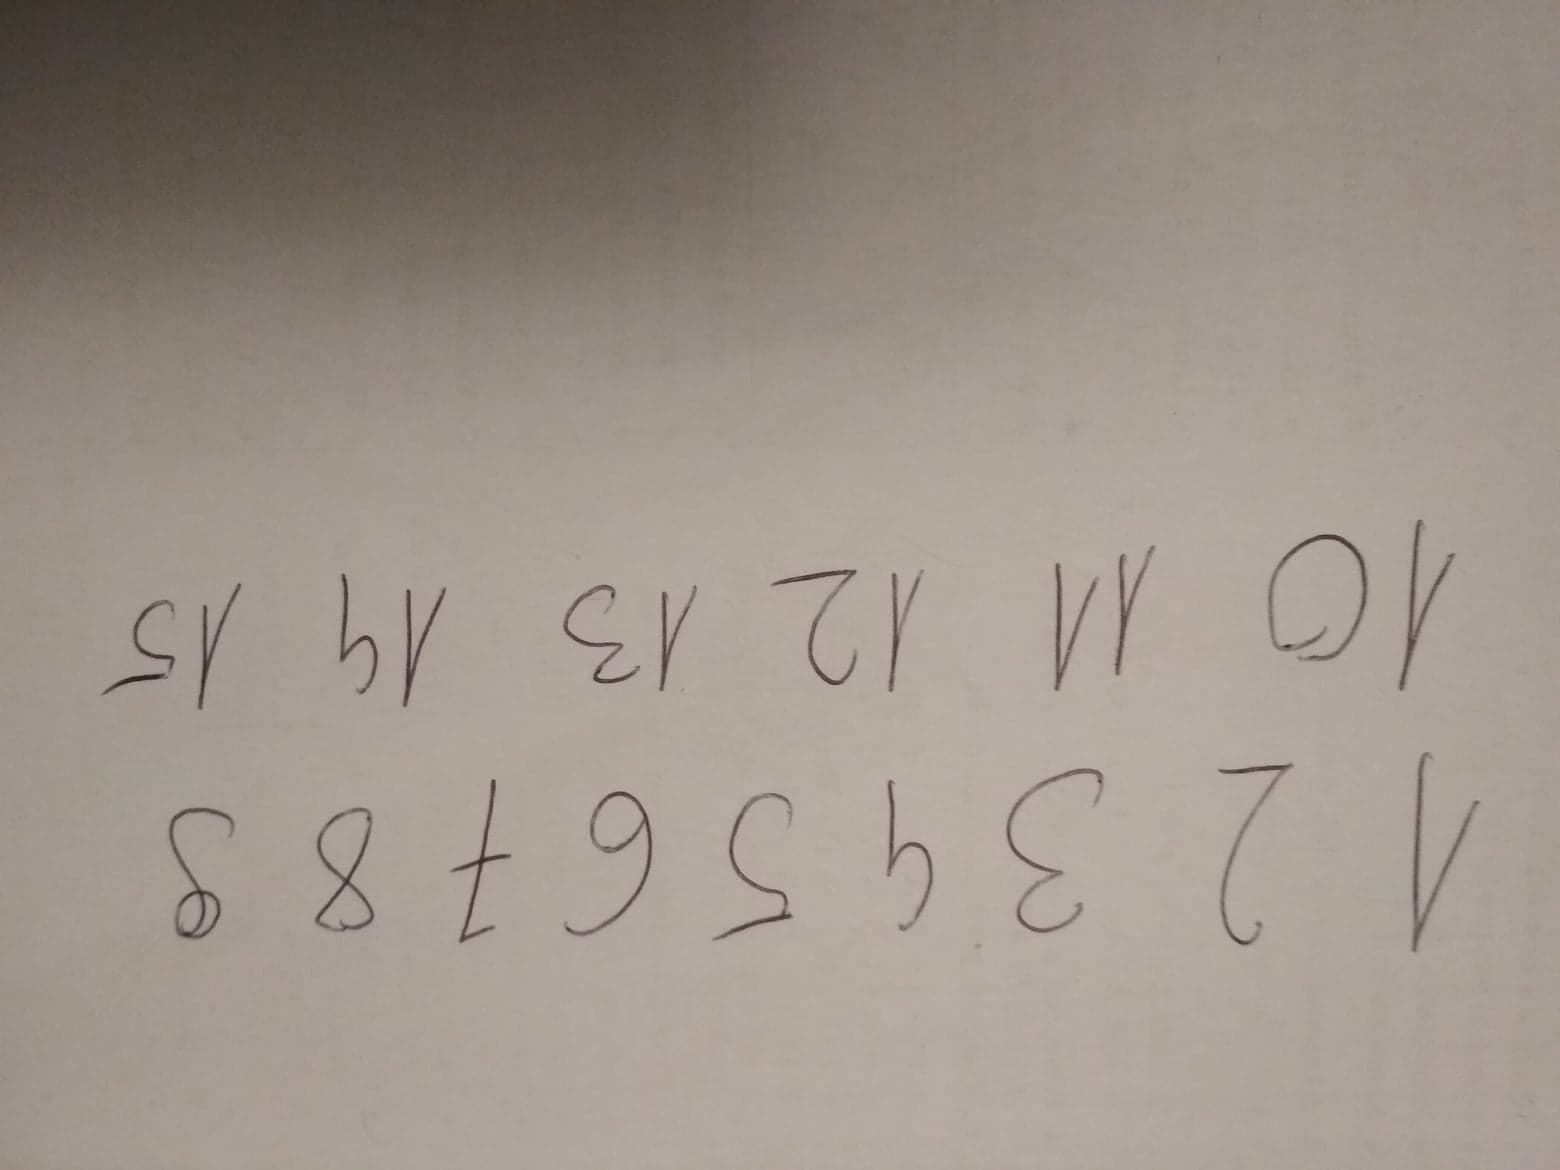 1 2 3 4 5 6 7 8 9
10 11 12 13 14 15